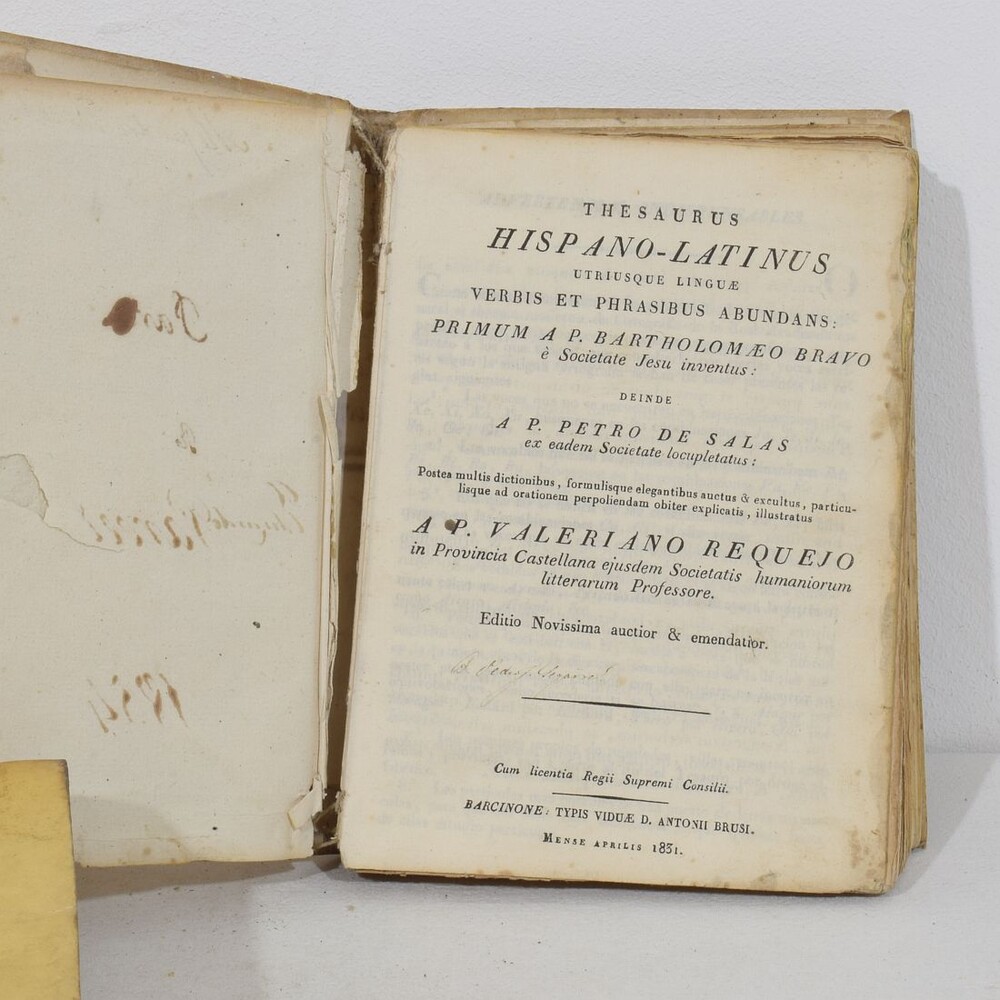 THESAURUS
HISPANO-LATINUS
UTRIUSQUE LINGUÆ
VERBIS ET PHRASIBUS ABUNDANS:
PRIMUM A P. BARTHOLOMÆO BRAVO
è Societate Jesu inventus:
DEINDE
A P. PETRO DE SALAS
ex eadem Societate locupletatus:
Postea multis dictionibus, formulisque elegantibus auctus & excultus, particu-
lisque ad orationem perpoliendam obiter explicatis, illustratus
A P. VALERIANO REQUEJO
in Provincia Castellana ejusdem Societatis humaniorum
litterarum Professore.
Editio Novissima auctior & emendatior.
Cum licentia Regii Supremi Consilii.
BARCINONE: TYPIS VIDUÆ D. ANTONII BRUSI.
MENSE APRILIS 1831.